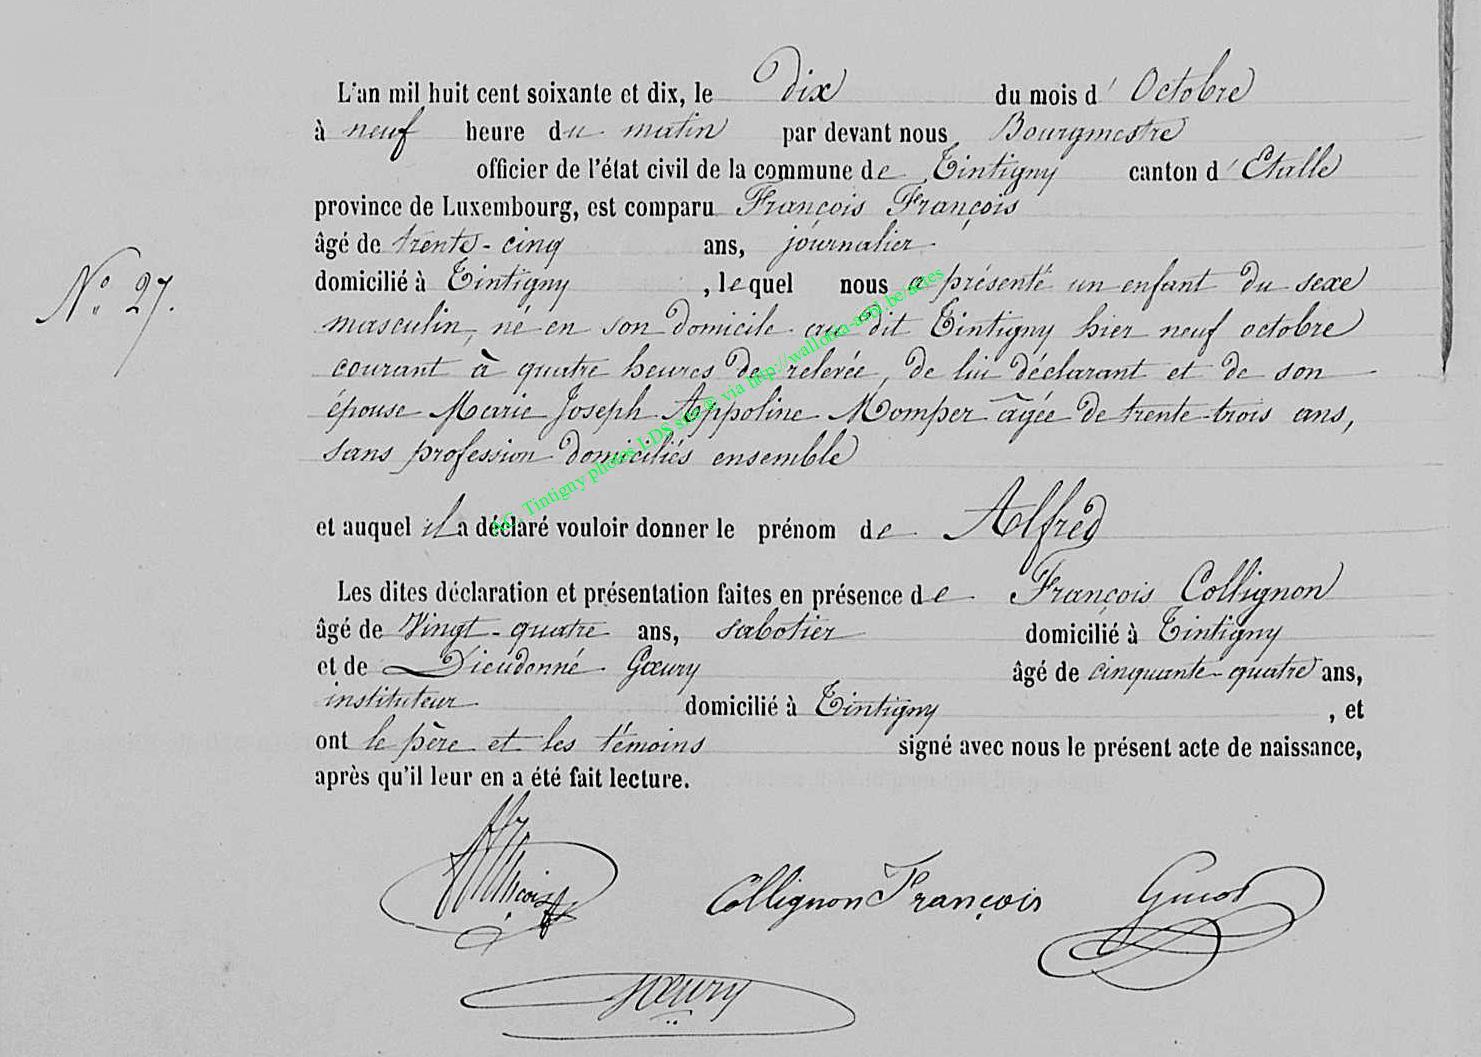 L'an mil huit cent soixante et dix, le dix du mois d' Octobre
à neuf heure du matin par devant nous Bourgmestre
officier de l'état civil de la commune de Tintigny canton d' Etalle
province de Luxembourg, est comparu François François
âgé de trente-cinq ans, journalier
domicilié à Tintigny , lequel nous a présenté un enfant du sexe
N° 27.
masculin, né en son domicile au dit Tintigny hier neuf octobre
courant à quatre heures de relevée, de lui déclarant et de son
épouse Marie Joseph Appoline Momper âgée de trente-trois ans,
sans profession domiciliés ensemble
AC. Tintigny photos LDS site © via http://wallonia-asbl.be/actes
et auquel il a déclaré vouloir donner le prénom de Alfred
Les dites déclaration et présentation faites en présence de François Collignon
âgé de Vingt-quatre ans, sabotier domicilié à Tintigny
et de Dieudonné Gœury âgé de cinquante-quatre ans,
instituteur domicilié à Tintigny , et
ont le père et les témoins signé avec nous le présent acte de naissance,
après qu'il leur en a été fait lecture.
Collignon François
Gœury